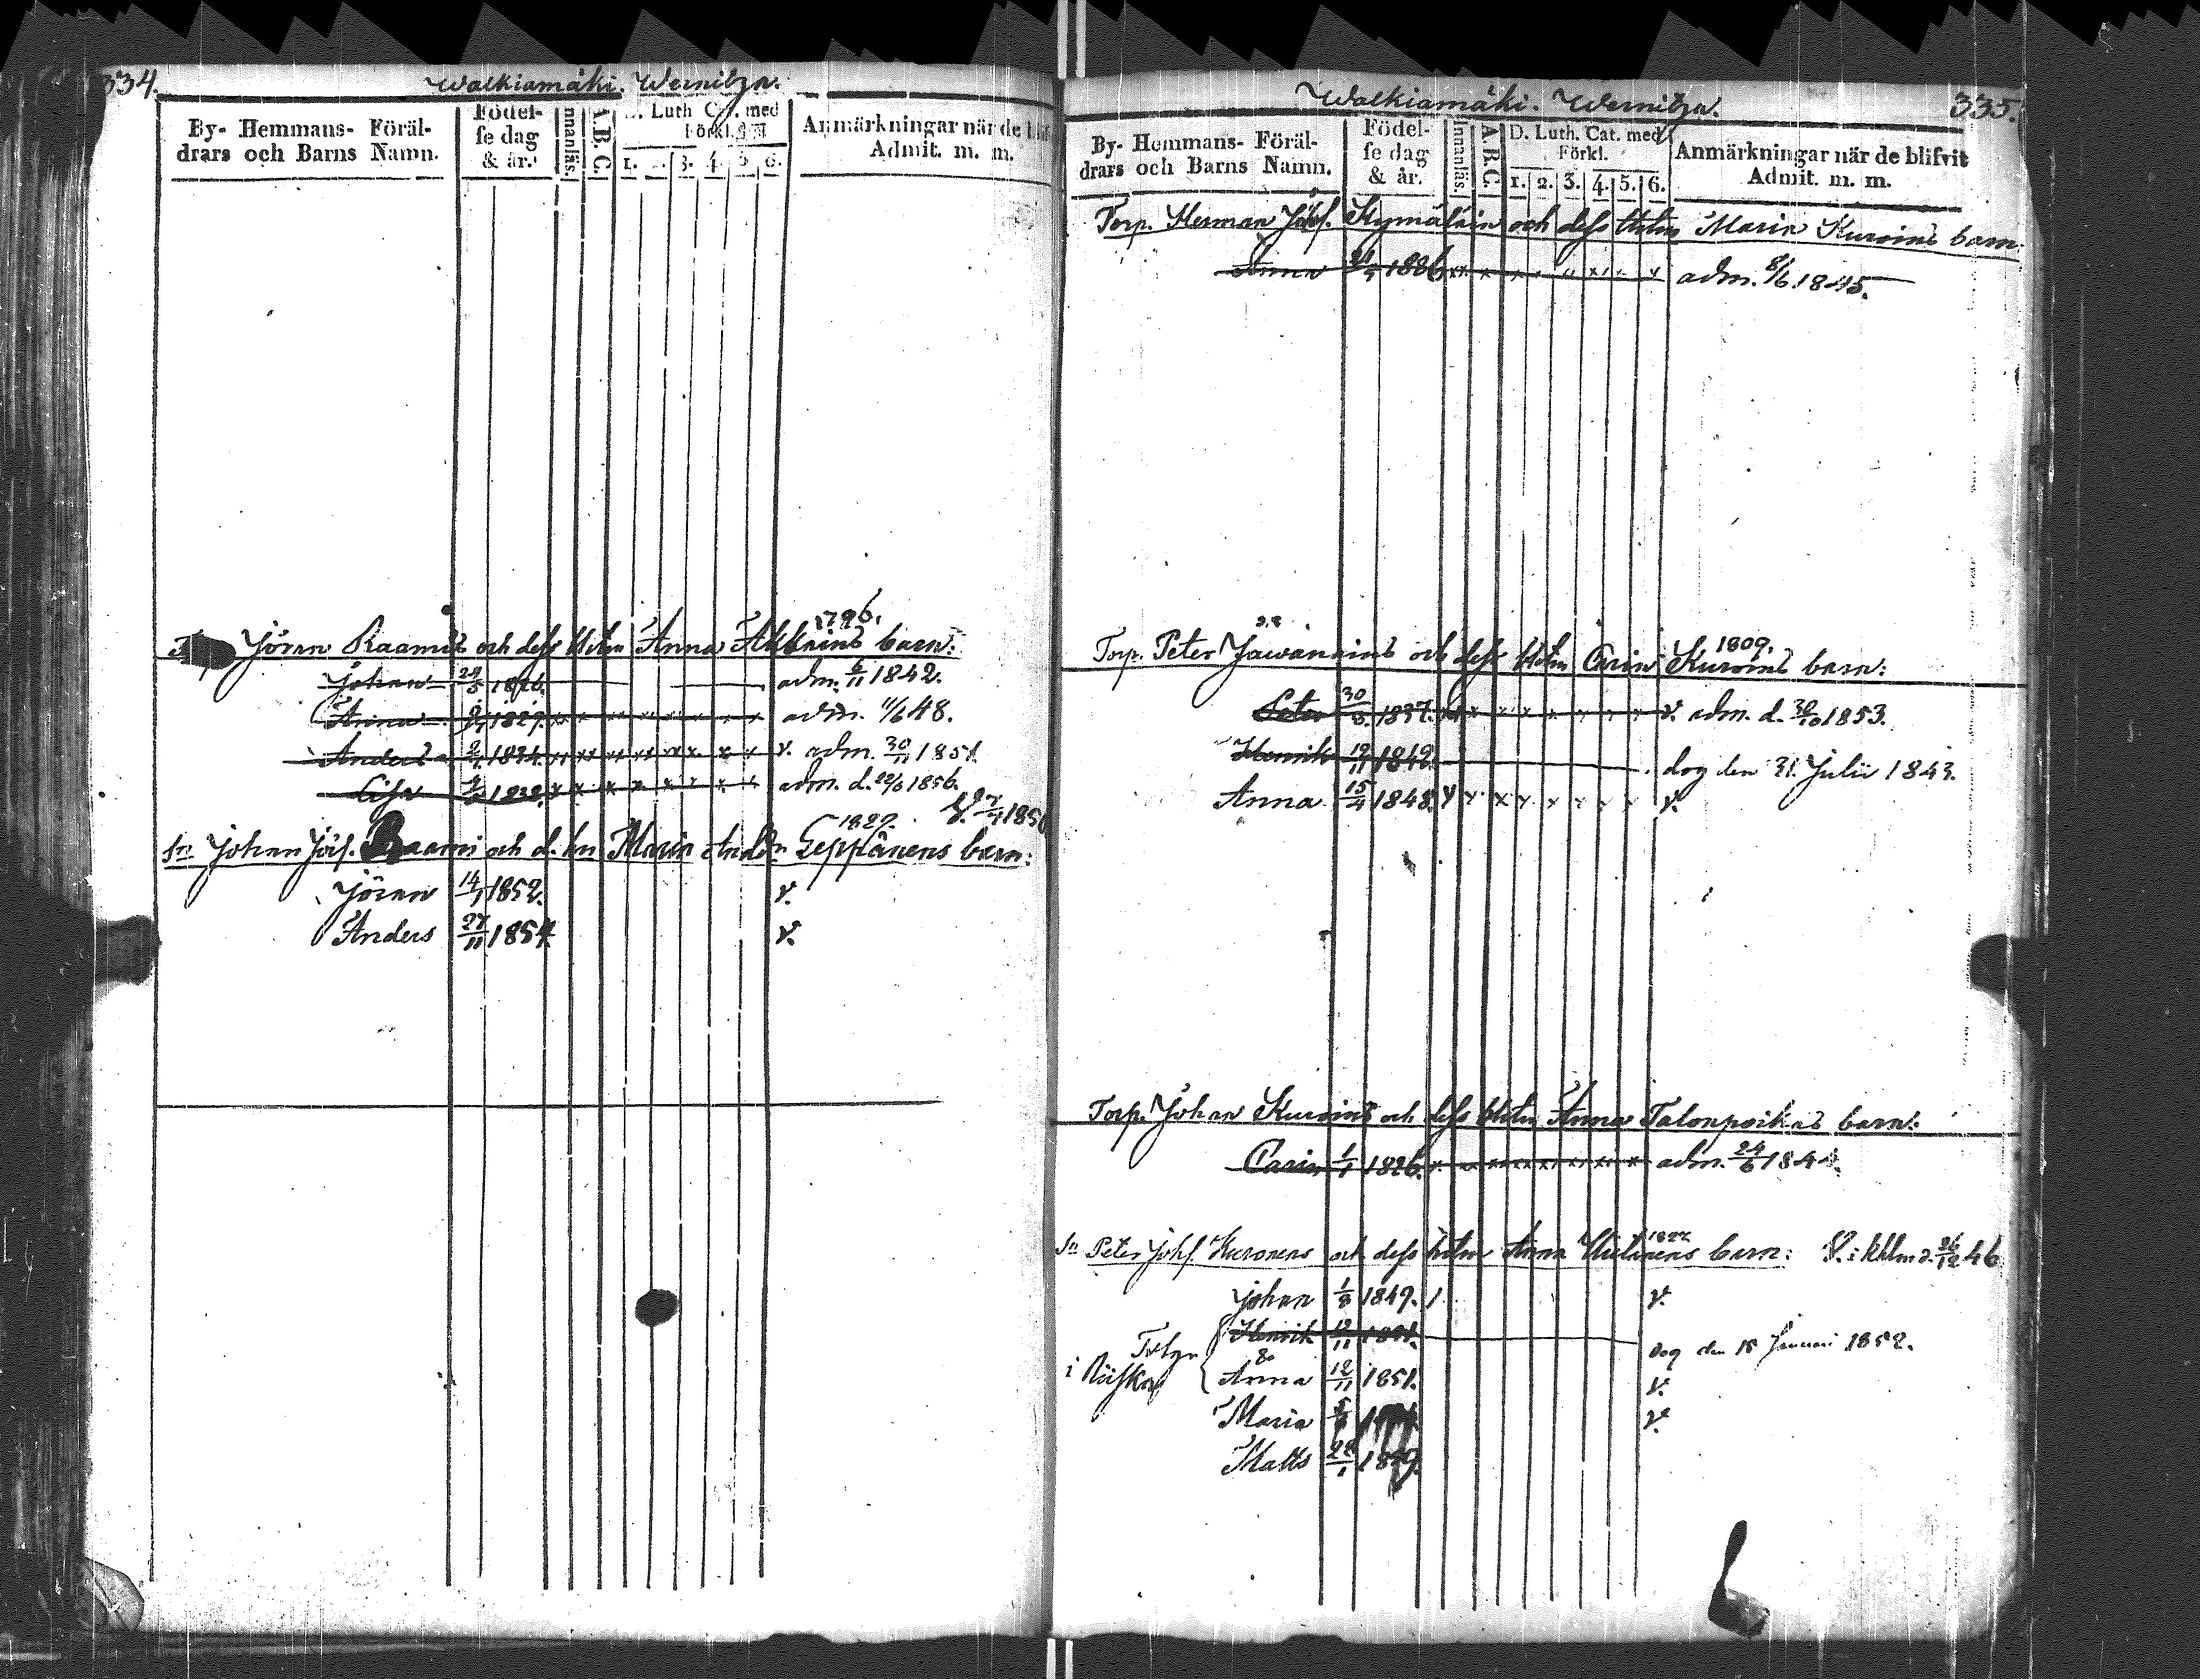 334.
Walkiamäki. Wernitza.
By- Hemmans- Föräl-
drars och Barns Namn.
Födel-
se dag
& år.
Innanläs.
A. B. C.
D. Luth Cat. med
Förkl.
1. 2. 3. 4. 5. 6.
Anmärkningar när de
Admit. m. m.
1796.
Jöran Raamis och dess Hstru Anna barn:
Johan 1826. adm. 1842.
Anna 1829. adm. 11/6 48.
Anders 1834. v. adm. 30/11 1851
Lisa 1838. adm. d. 22/6 1856.
1829.
Sn Johan Jörs. Raami och d. hu Maria Seppänens barn:
Jöran 14/1 1852. v.
Anders 27/11 1854 v.
Walkiamäki. Wernitza.
335.
By- Hemmans- Föräl-
drars och Barns Namn.
Födel-
se dag
& år.
Innanläs.
A. B. C.
D. Luth. Cat. med
Förkl.
1. 2. 3. 4. 5. 6.
Anmärkningar när de blifvit
Admit. m. m.
Torp. Herman Kymäläin och dess Hstru Maria Kuroins barn:
Anna adm. 8/6 1845.
1809.
Torp. Peter Jawanains och dess Hstru Carin Kuroins barn:
Peter 30/8 1837. v. adm. d. 30/10 1853.
Henrik 19/11 1842. dog den 31. Julii 1843.
Anna 15/4 1848. v.
Torp. Johan Kuroins och dess Hstru Anna Talonpoikas barn:
Carin 1/1 1826. adm. 24/6 1844.
1822
Sn Peter Johs. Kuronens och dess hstru Anna barn: 46
Johan 1/8 1849. v.
Henrik 12/11 1851. dog den 15 Januari 1852.
i
Anna 12/11 1851. v.
Maria v.
Matts